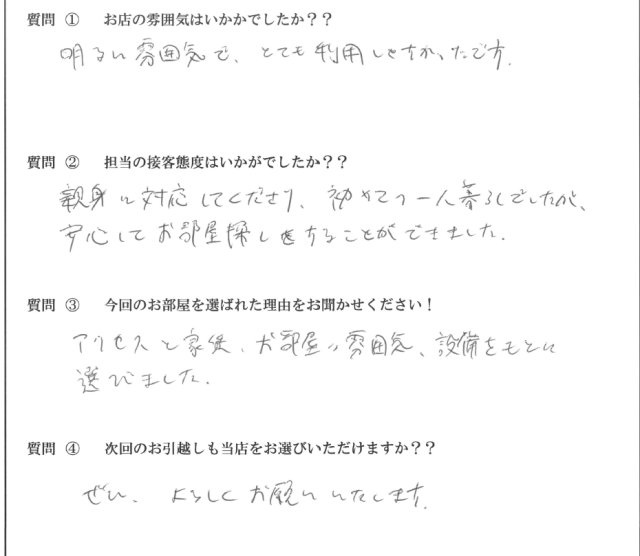 質問 ① お店の雰囲気はいかかでしたか??
明るい雰囲気で、とても利用しやすかったです.
質問 ② 担当の接客態度はいかがでしたか??
親身に対応してくださり、初めての一人暮らしでしたが、
安心してお部屋探しをすることができました.
質問 ③ 今回のお部屋を選ばれた理由をお聞かせください!
アクセスと家賃、お部屋の雰囲気、設備をもとに
選びました.
質問 ④ 次回のお引越しも当店をお選びいただけますか??
ぜひ、よろしくお願いいたします.